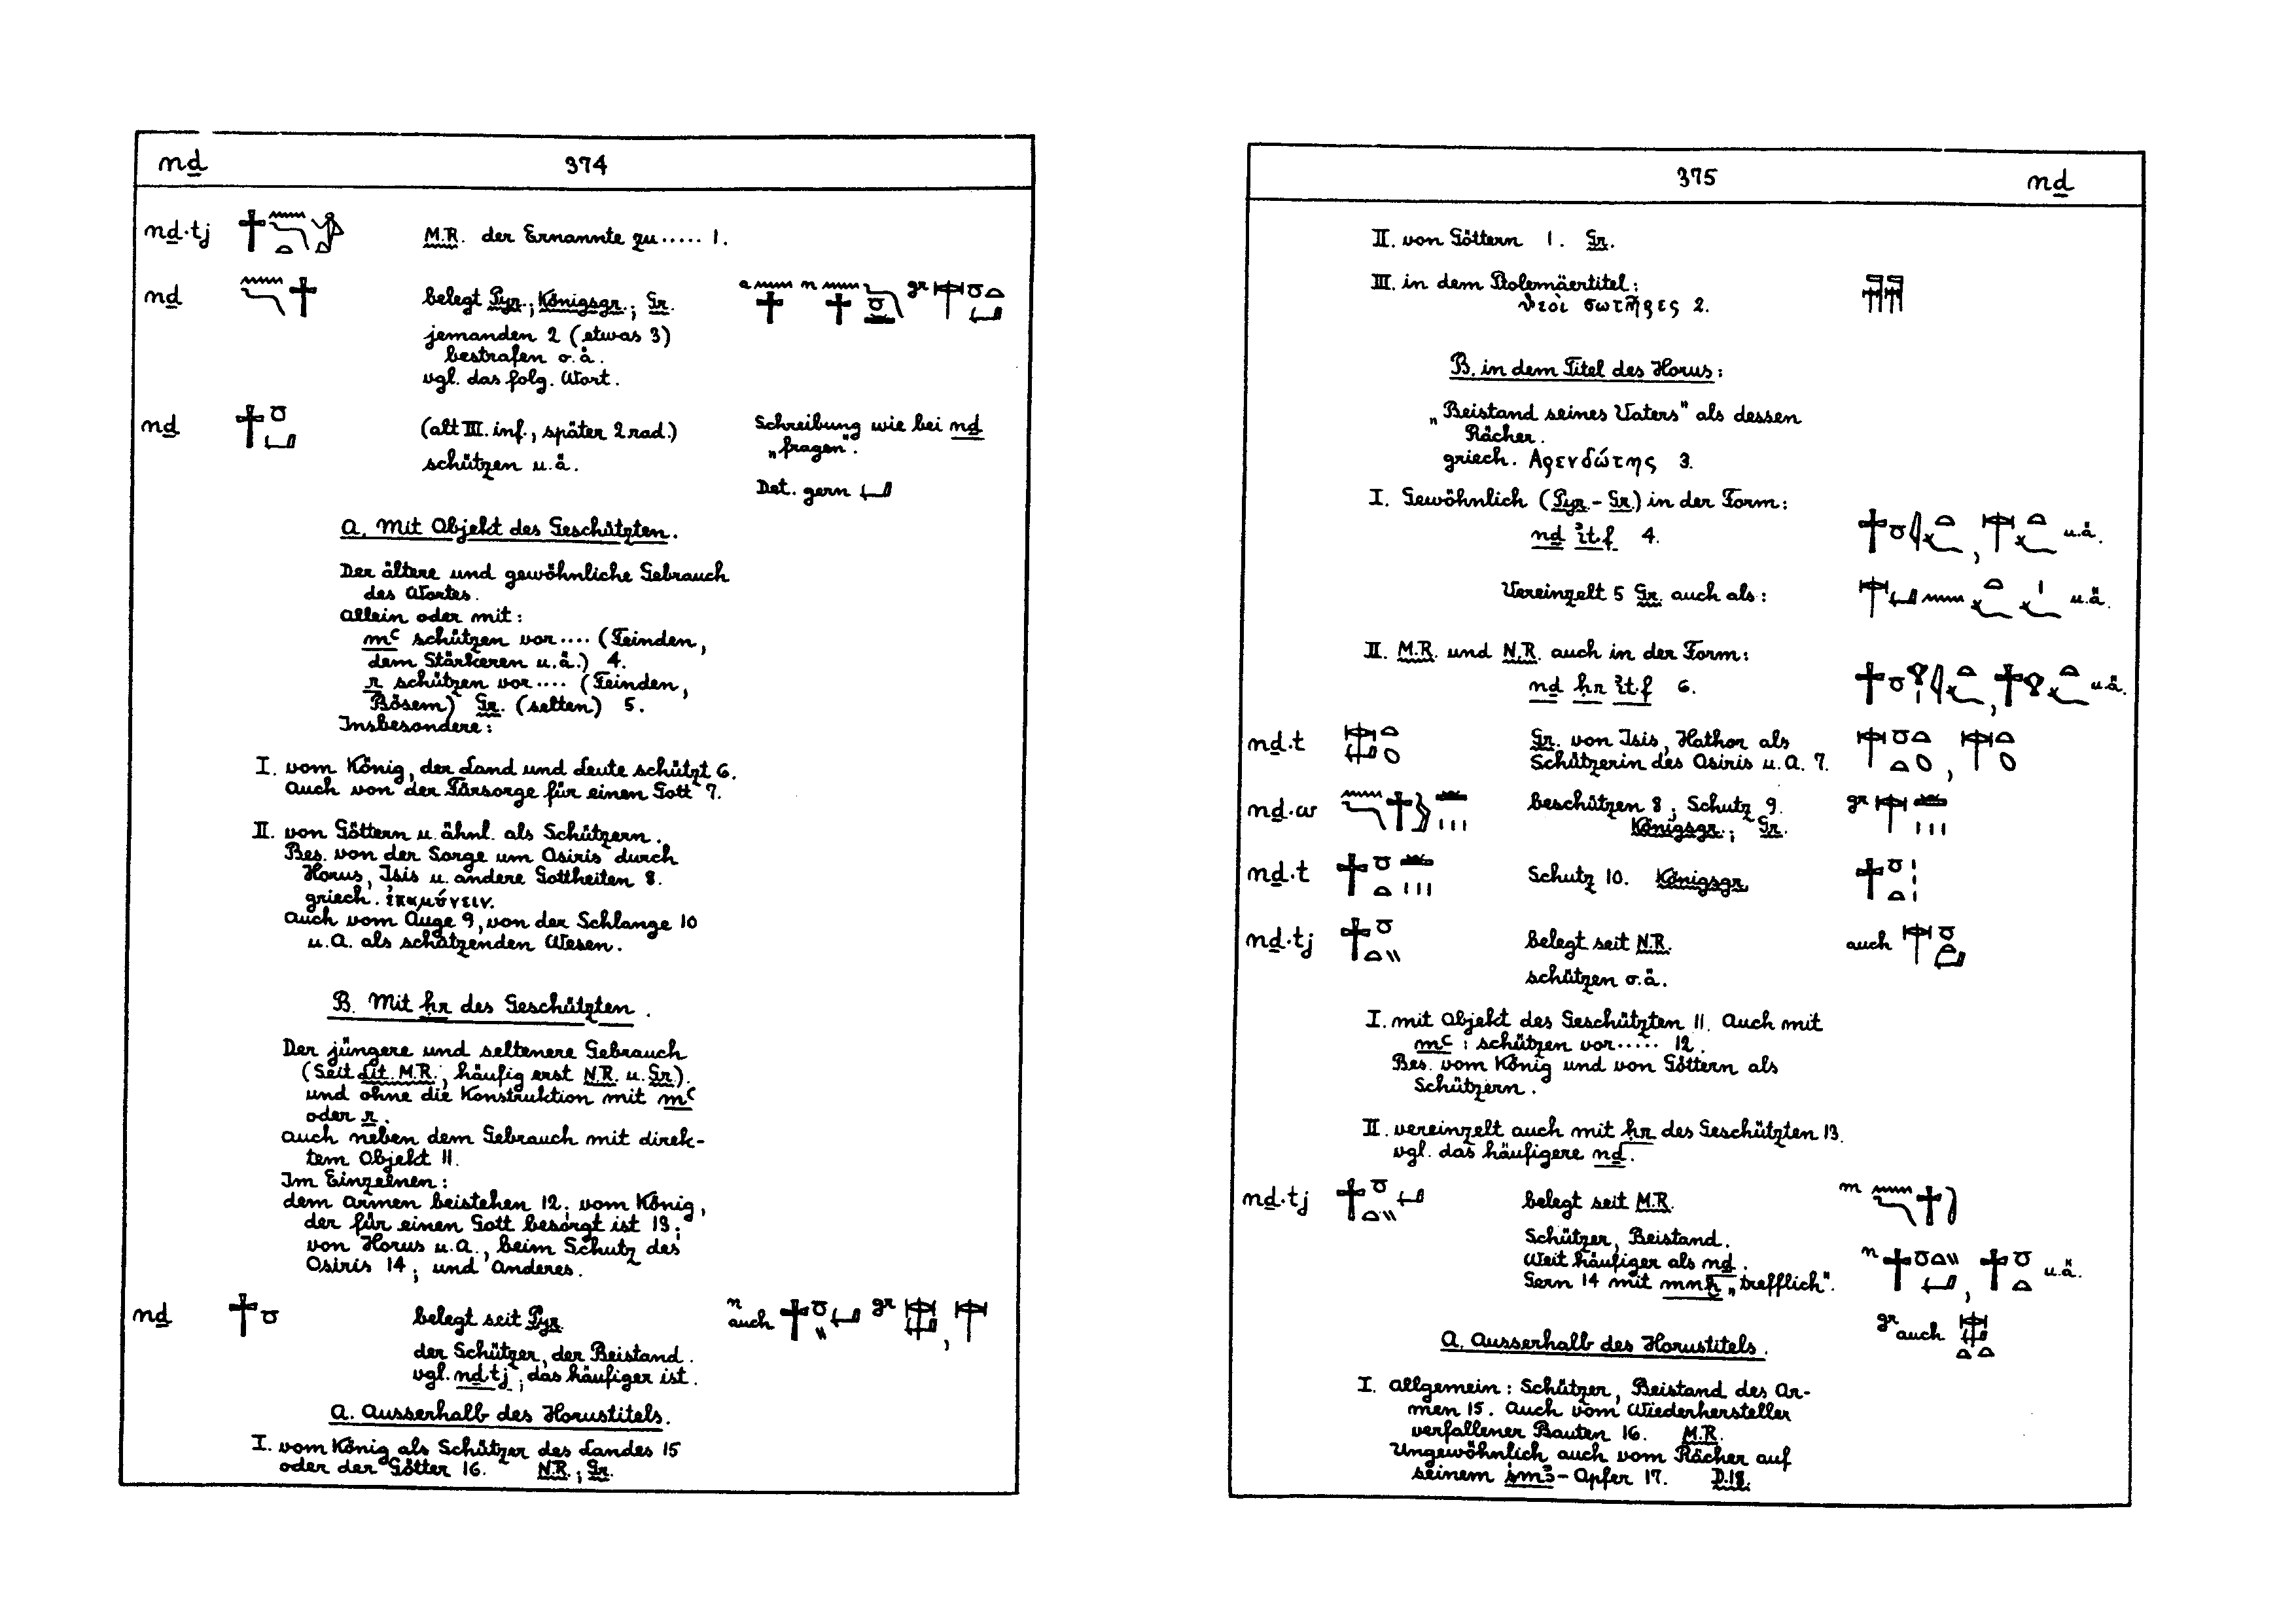 nḏ 374
nḏ·tj M.R. der Ernannte zu ····· 1.
nḏ belegt Pyr.; Königsgr.; Gr. a n gr
jemanden 2 (etwas 3)
bestrafen o.ä.
vgl. das folg. Wort.
nḏ (alt III. inf., später 2 rad.) Schreibung wie bei nḏ
„fragen".
schützen u.ä.
Det. gern
A. Mit Objekt des Geschützten.
Der ältere und gewöhnliche Gebrauch
des Wortes.
Allein oder mit:
mꜥ schützen vor ···· (Feinden,
dem Stärkeren u.ä.) 4.
r schützen vor ···· (Feinden,
Bösem) Gr. (selten) 5.
Insbesondere:
I. vom König, der Land und Leute schützt 6.
Auch von der Fürsorge für einen Gott 7.
II. von Göttern u. ähnl. als Schützern.
Bes. von der Sorge um Osiris durch
Horus, Isis u. andere Gottheiten 8.
griech. ἐπαμύνειν.
Auch vom Auge 9, von der Schlange 10
u.A. als schützenden Wesen.
B. Mit ḥr des Geschützten.
Der jüngere und seltenere Gebrauch
(Seit Lit. M.R., häufig erst N.R. u. Gr.).
und ohne die Konstruktion mit mꜥ
oder r.
Auch neben dem Gebrauch mit direk-
tem Objekt 11.
Im Einzelnen:
dem Armen beistehen 12; vom König,
der für einen Gott besorgt ist 13;
von Horus u.A., beim Schutz des
Osiris 14; und Anderes.
nḏ belegt seit Pyr. n auch gr ,
der Schützer, der Beistand.
vgl. nḏ·tj, das häufiger ist.
A. Ausserhalb des Horustitels.
I. vom König als Schützer des Landes 15
oder der Götter 16. N.R.; Gr.
375 nḏ
II. von Göttern 1. Gr.
III. in dem Ptolemäertitel:
θεοὶ σωτῆρες 2.
B. in dem Titel des Horus:
„Beistand seines Vaters" als dessen
Rächer.
griech. Ἁρενδώτης 3.
I. Gewöhnlich (Pyr. - Gr.) in der Form:
nḏ ỉt.f 4. , u.ä.
Vereinzelt 5 Gr. auch als: u.ä.
II. M.R. und N.R. auch in der Form:
nḏ ḥr ỉt.f 6. , u.ä.
nḏ·t Gr. von Isis, Hathor als ,
Schützerin des Osiris u.A. 7.
nḏ·w beschützen 8; Schutz 9. gr
Königsgr.; Gr.
nḏ·t Schutz 10. Königsgr.
nḏ·tj belegt seit N.R. auch
schützen o.ä.
I. mit Objekt des Geschützten 11. Auch mit
mꜥ: schützen vor ····· 12.
Bes. vom König und von Göttern als
Schützern.
II. vereinzelt auch mit ḥr des Geschützten 13.
vgl. das häufigere nḏ.
nḏ·tj belegt seit M.R. m
Schützer, Beistand.
Weit häufiger als nḏ. n , u.ä.
Gern 14 mit mnḫ „trefflich".
gr auch
A. Ausserhalb des Horustitels.
I. Allgemein: Schützer, Beistand des Ar-
men 15. Auch vom Wiederhersteller
verfallener Bauten 16. M.R.
Ungewöhnlich auch vom Rächer auf
seinem śmꜣ-Opfer 17. D.18.